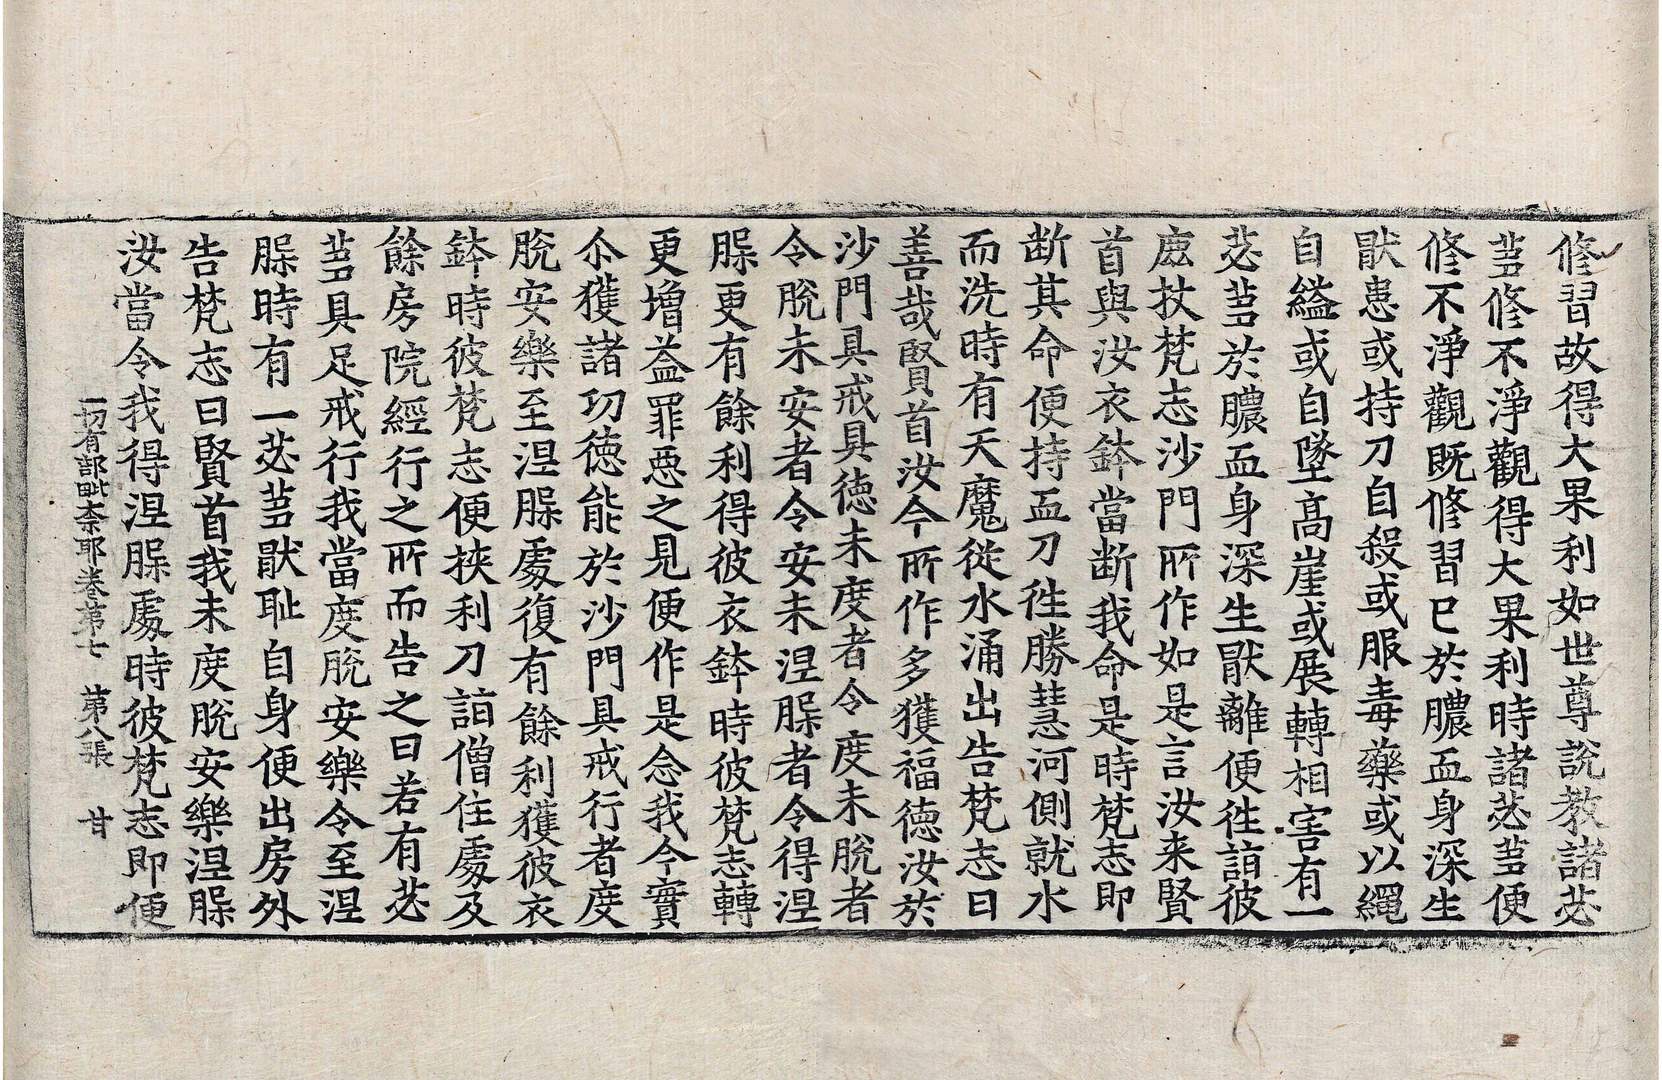 修習故得大果利如世尊說教諸苾
芻修不淨觀得大果利時諸苾芻便
修不淨觀既修習已於膿血身深生
猒患或持刀自殺或服毒藥或以繩
自縊或自墜高崖或展轉相害有一
苾芻於膿血身深生猒離便往詣彼
鹿杖梵志沙門所作如是言汝来賢
首與汝衣鉢當断我命是時梵志即
断其命便持血刀往勝慧河側就水
而洗時有天魔從水涌出告梵志曰
善哉賢首汝今所作多獲福德汝於
沙門具戒具德未度者令度未脫者
令脫未安者令安未涅槃者令得涅
槃更有餘利得彼衣鉢時彼梵志轉
更增益罪惡之見便作是念我今實
尒獲諸功德能於沙門具戒行者度
脫安樂至涅槃處復有餘利獲彼衣
鉢時彼梵志便挾利刀詣僧住處及
餘房院經行之所而告之曰若有苾
芻具足戒行我當度脫安樂令至涅
槃時有一苾芻猒耻自身便出房外
告梵志曰賢首我未度脫安樂涅槃
汝當令我得涅槃處時彼梵志即便
一切有部毗奈耶卷第七 第八張 甘